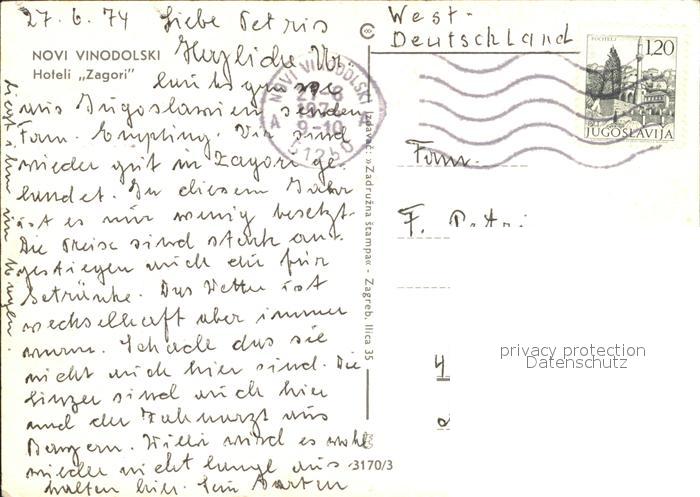 27.6.74 Liebe Petris
NOVI VINODOLSKI
Hoteli „Zagori"
Herzliche Ur-
laubsgrüsse
aus Jugoslawien senden
Fam. Empting. Wir sind
wieder gut in Zagori ge-
landet. In diesem Jahr
ist es nur wenig besetzt.
Die Preise sind stark an-
gestiegen auch die für
Getränke. Das Wetter ist
wechselhaft aber immer
warm. Schade das sie
nicht auch hier sind. Die
Linzer sind auch hier
und der Zahnarzt aus
Bayern. Willi wird es wohl
wieder nicht lange aus-
halten hier. Sein Garten
liegt ihm im Magen.
West-
Deutschland
POČITELJ
1.20
JUGOSLAVIJA
NOVI VINODOLSKI
9-10
51250
Izdavač: »Zadružna štampa« - Zagreb, Ilica 35
Fam.
F. Petri
4
3170/3
privacy protection
Datenschutz